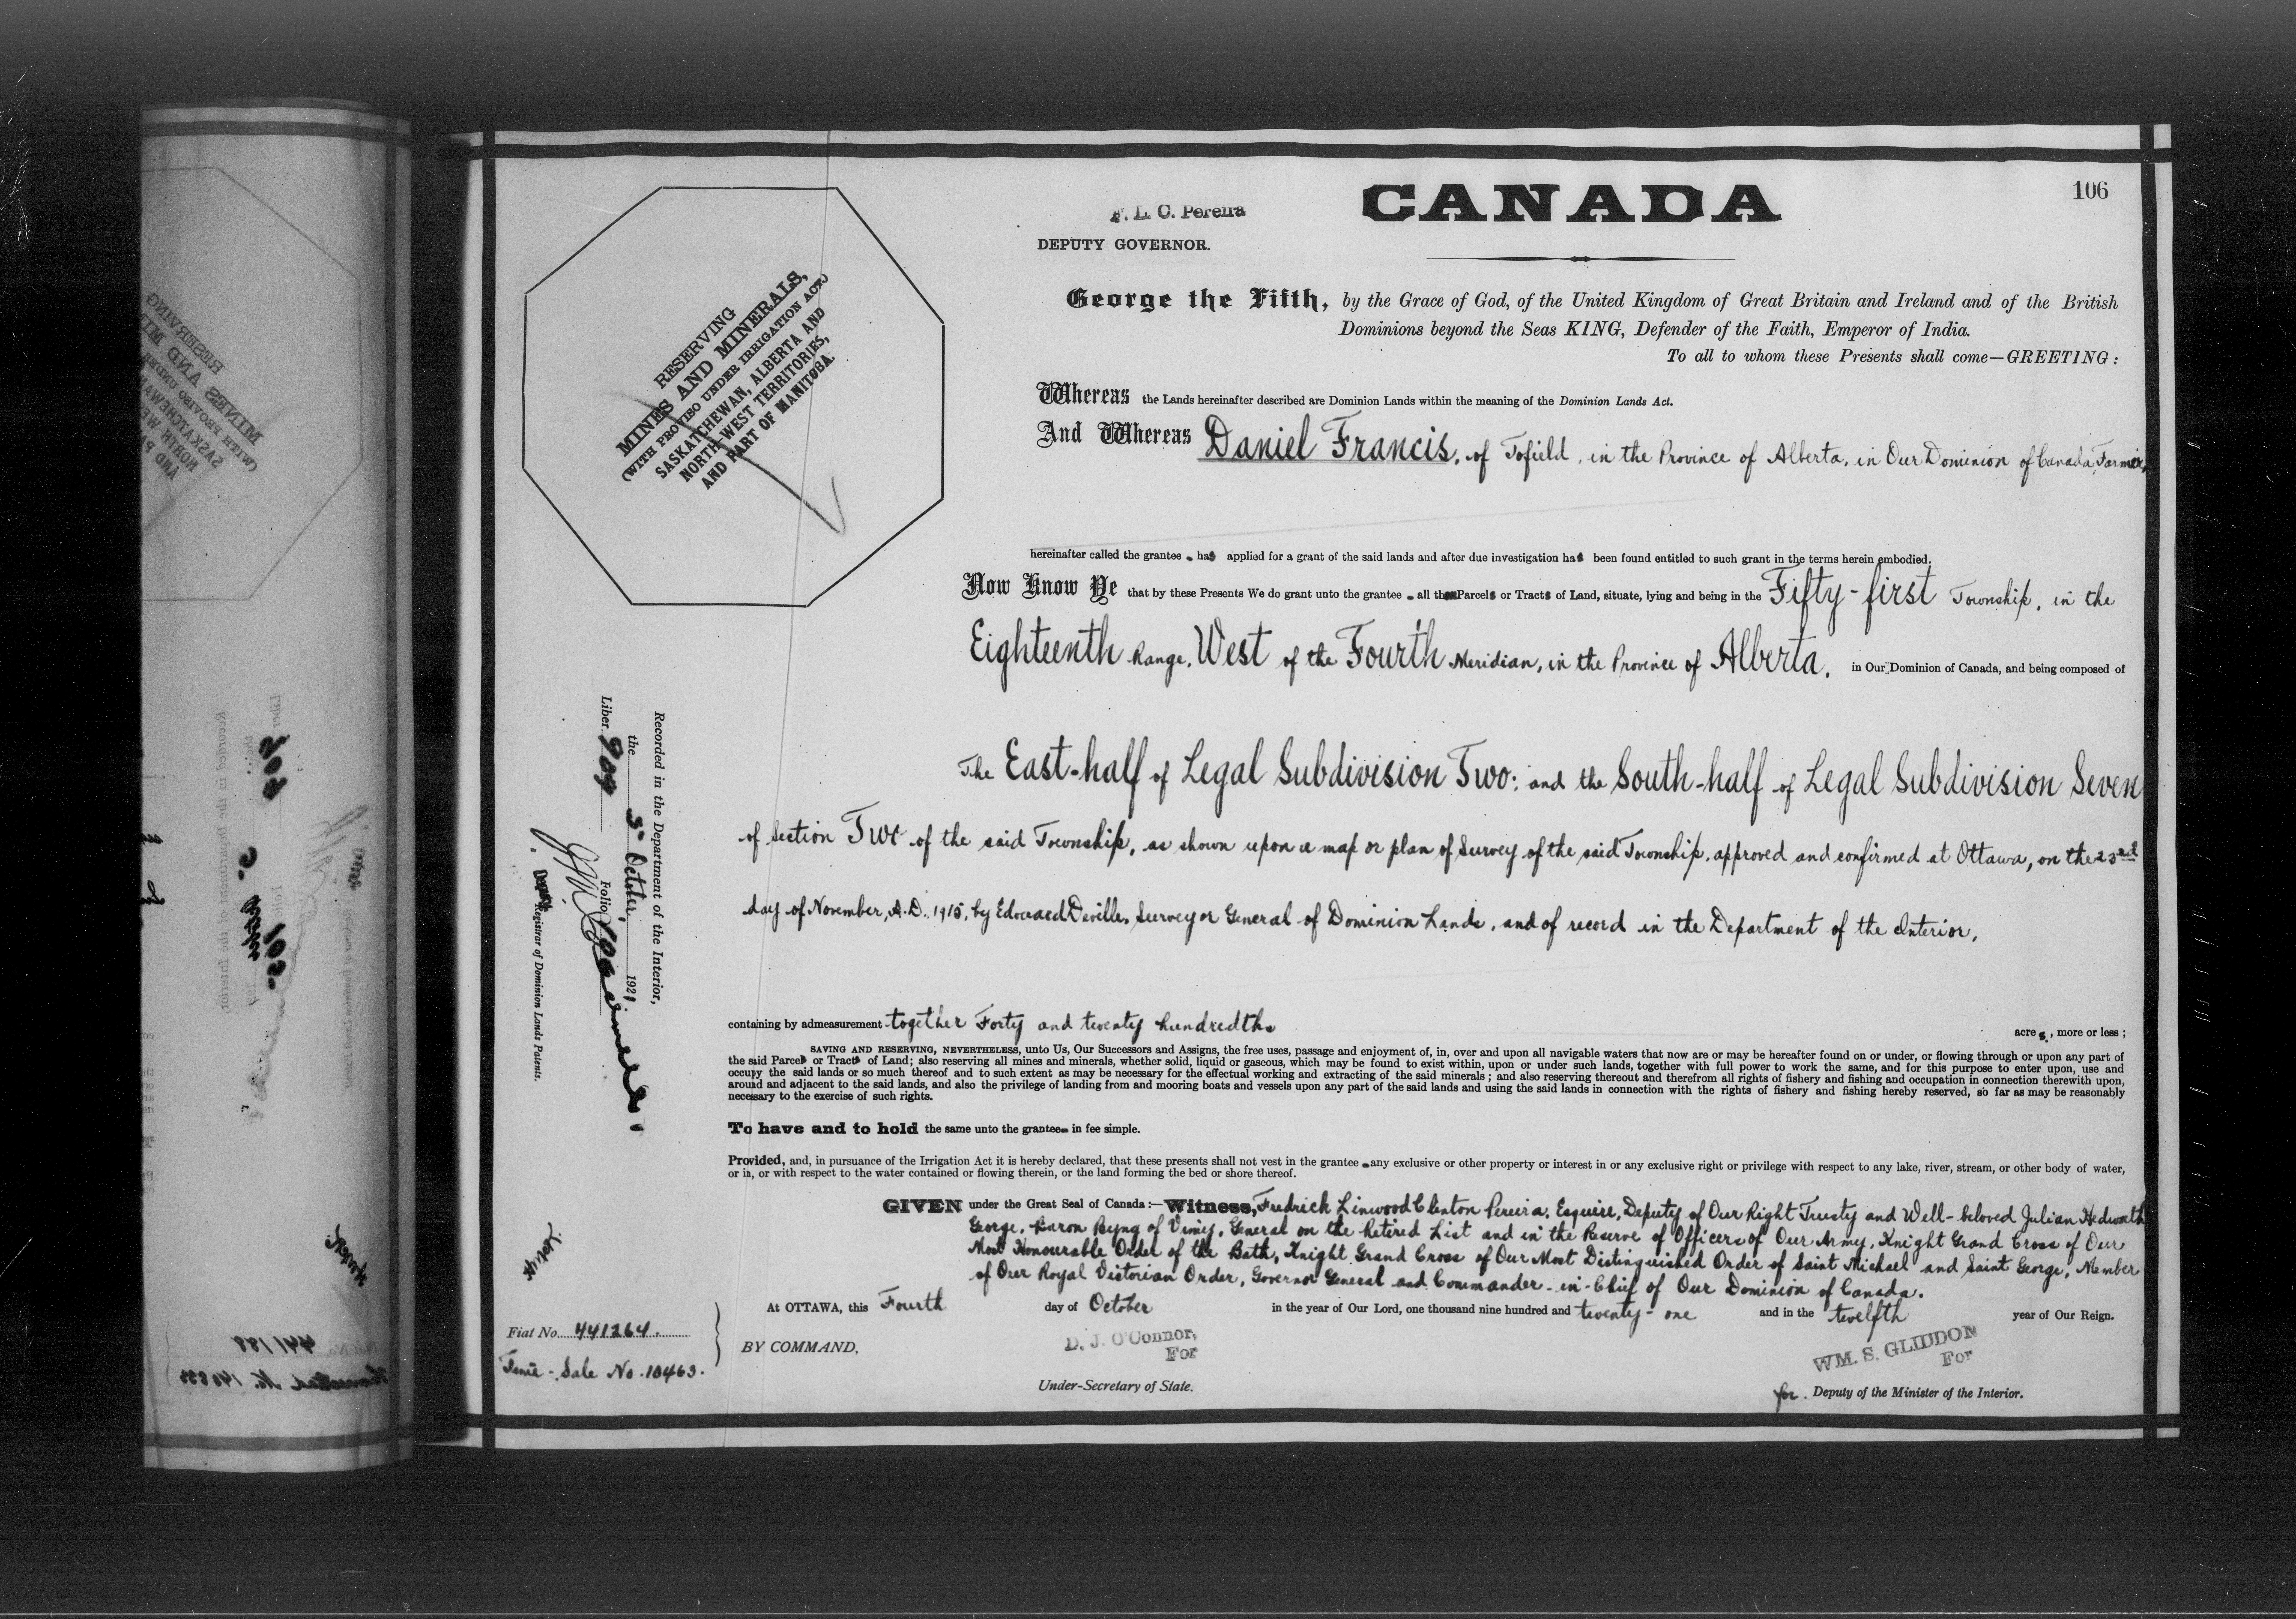 CANADA
106
F. L. C. Pereira
DEPUTY GOVERNOR.
George the Fifth, by the Grace of God, of the United Kingdom of Great Britain and Ireland and of the British
Dominions beyond the Seas KING, Defender of the Faith, Emperor of India.
To all to whom these Presents shall come—GREETING:
RESERVING
MINES AND MINERALS,
(WITH PROVISO UNDER IRRIGATION ACT.)
SASKATCHEWAN, ALBERTA AND
NORTH-WEST TERRITORIES,
AND PART OF MANITOBA.
Whereas the Lands hereinafter described are Dominion Lands within the meaning of the Dominion Lands Act.
And Whereas Daniel Francis, of Tofield, in the Province of Alberta, in Our Dominion of Canada, Farmer,
hereinafter called the grantee has applied for a grant of the said lands and after due investigation has been found entitled to such grant in the terms herein embodied.
Now Know Ye that by these Presents We do grant unto the grantee all those Parcels or Tracts of Land, situate, lying and being in the Fifty-first Township, in the
Eighteenth Range, West of the Fourth Meridian, in the Province of Alberta, in Our Dominion of Canada, and being composed of
The East-half of Legal Subdivision Two; and the South-half of Legal Subdivision Seven
of section Two of the said Township, as shown upon a map or plan of Survey of the said Township, approved and confirmed at Ottawa, on the 23rd
day of November, A.D. 1915, by Edouard Deville, Surveyor General of Dominion Lands, and of record in the Department of the Interior,
containing by admeasurement together Forty and twenty hundredths acres, more or less;
SAVING AND RESERVING, NEVERTHELESS, unto Us, Our Successors and Assigns, the free uses, passage and enjoyment of, in, over and upon all navigable waters that now are or may be hereafter found on or under, or flowing through or upon any part of
the said Parcels or Tracts of Land; also reserving all mines and minerals, whether solid, liquid or gaseous, which may be found to exist within, upon or under such lands, together with full power to work the same, and for this purpose to enter upon, use and
occupy the said lands or so much thereof and to such extent as may be necessary for the effectual working and extracting of the said minerals; and also reserving thereout and therefrom all rights of fishery and fishing and occupation in connection therewith upon,
around and adjacent to the said lands, and also the privilege of landing from and mooring boats and vessels upon any part of the said lands and using the said lands in connection with the rights of fishery and fishing hereby reserved, so far as may be reasonably
necessary to the exercise of such rights.
To have and to hold the same unto the grantee in fee simple.
Provided, and, in pursuance of the Irrigation Act it is hereby declared, that these presents shall not vest in the grantee any exclusive or other property or interest in or any exclusive right or privilege with respect to any lake, river, stream, or other body of water,
or in, or with respect to the water contained or flowing therein, or the land forming the bed or shore thereof.
GIVEN under the Great Seal of Canada:—Witness, Fredrick Linwood Clinton Pereira, Esquire, Deputy of Our Right Trusty and Well-beloved Julian Hedworth
George, Baron Byng of Vimy, General on the Retired List and in the Reserve of Officers of Our Army, Knight Grand Cross of Our
Most Honourable Order of the Bath, Knight Grand Cross of Our Most Distinguished Order of Saint Michael and Saint George, Member
of Our Royal Victorian Order, Governor General and Commander-in-Chief of Our Dominion of Canada.
At OTTAWA, this Fourth day of October in the year of Our Lord, one thousand nine hundred and twenty-one and in the twelfth year of Our Reign.
BY COMMAND,
D. J. O'Connor,
For
Under-Secretary of State.
WM. S. GLIDDON
For
for. Deputy of the Minister of the Interior.
Recorded in the Department of the Interior,
the 5th October, 1921
Liber 909 Folio 106
Deputy Registrar of Dominion Lands Patents.
Fiat No. 441264.
Sale No. 10463.